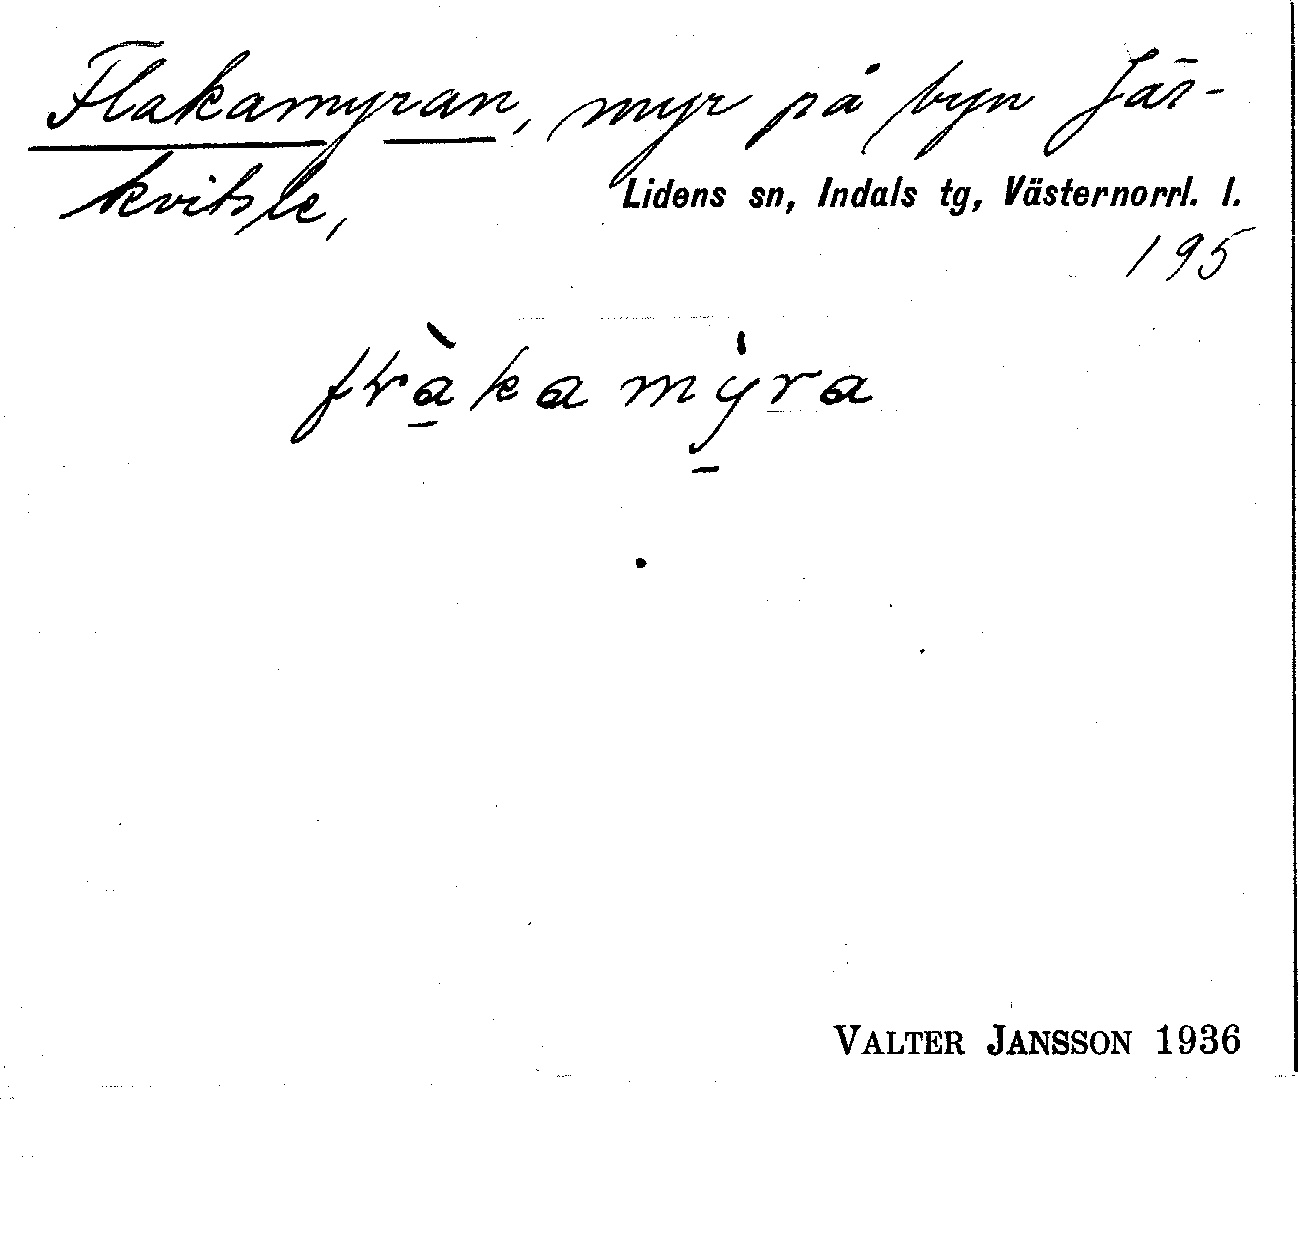 Flakamyran, myr på byn Jär-
kvitsle,
Lidens sn, Indals tg, Västernorrl. l.
195
fłàkamýra
VALTER JANSSON 1936